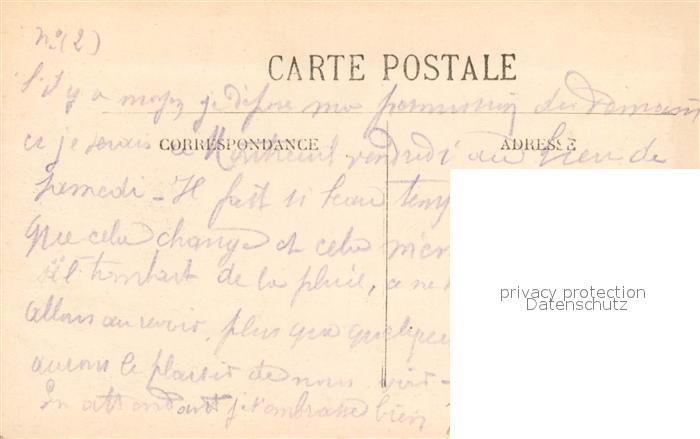 No (2)
CARTE POSTALE
S'il y a moyen je dépose ma permission des demain
CORRESPONDANCE
ADRESSE
et je serais à Montreuil vendredi au lieu de
Samedi - Il fait si beau temps
que cela change et cela
s'il tombait de la pluie, ce ne
allons au revoir, plus que quelques
aurons le plaisir de nous voir -
En attendant je t'embrasse bien
privacy protection
Datenschutz